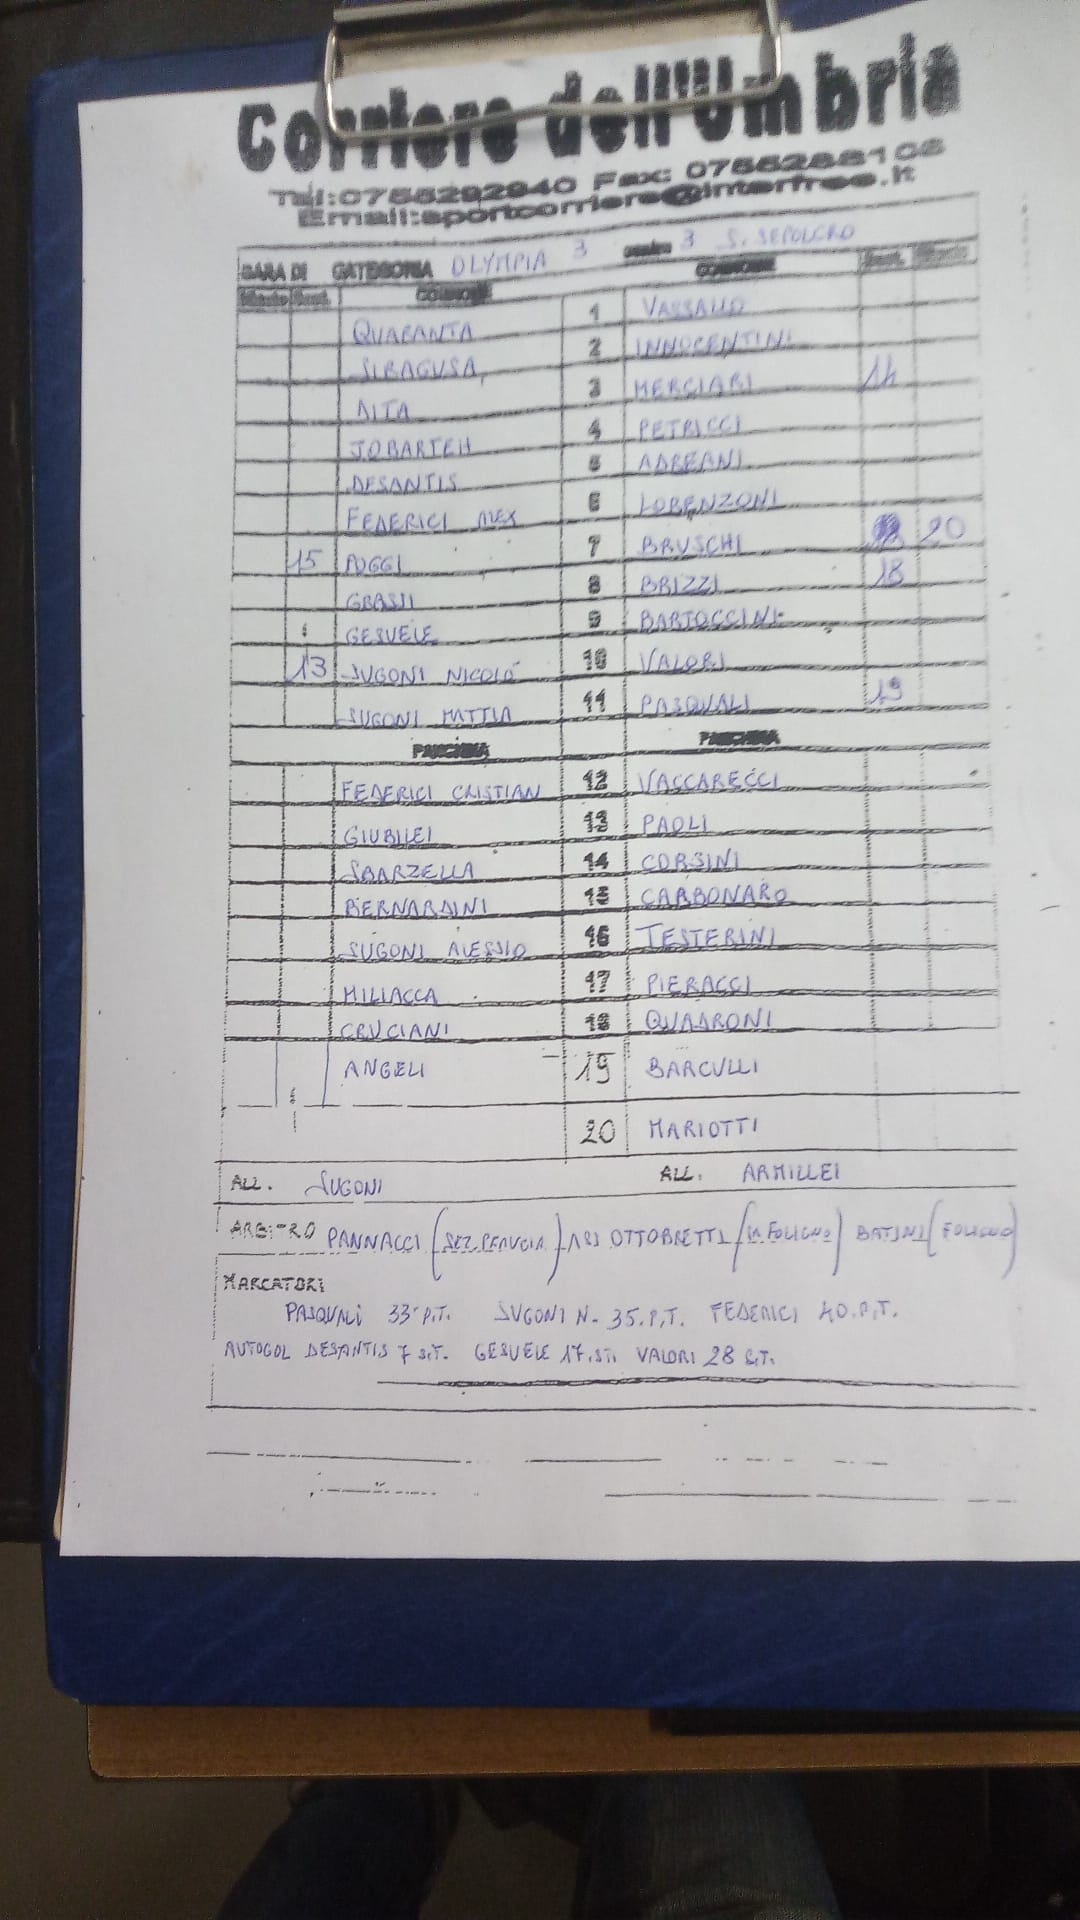 Corriere dell'Umbria
Tel:0755292940 Fax: 0755288108
Email:sportcorriere@interfree.it
GARA DI CATEGORIA OLYMPIA 3 contro 3 S. SEPOLCRO
COGNOME COGNOME Sost.
QUARANTA 1 VASSALLO
SIRAGUSA 2 INNOCENTINI
DITA 3 MERCIARI 14
JOBARTEH 4 PETRICCI
DESANTIS 5 ADREANI
FEDERICI MEX 6 LORENZONI
15 POGGI 7 BRUSCHI 20
GRASII 8 BRIZZI 18
GESUELE 9 BARTOCCINI
13 SUGONI NICOLÓ 10 VALORI
SUGONI MATTIA 11 PASQUALI 19
PANCHINA PANCHINA
FEDERICI CRISTIAN 12 VACCARECCI
GIUBILEI 13 PAOLI
SBARZELLA 14 CORSINI
BERNARDINI 15 CARBONARO
SUGONI ALESSIO 16 TESTERINI
MILIACCA 17 PIERACCI
CRUCIANI 18 QUADRONI
ANGELI 19 BARCULLI
20 MARIOTTI
ALL. SUGONI ALL. ARMILLEI
ARBITRO PANNACCI (SEZ. PERUGIA) ASS OTTOBRETTI (FOLIGNO) BATINI (FOLIGNO)
MARCATORI
PASQUALI 33' P.T. SUGONI N. 35.P.T. FEDERICI 40.P.T.
AUTOGOL DESANTIS 7 S.T. GESUELE 17.ST. VALORI 28 S.T.